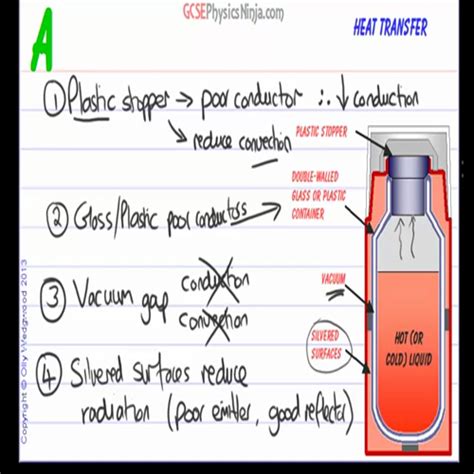 GCSEPhysicsNinja.com
HEAT TRANSFER
A
① Plastic stopper → poor conductor ∴ ↓ conduction
→ reduce convection
PLASTIC STOPPER
DOUBLE-WALLED
GLASS OR PLASTIC
CONTAINER
② Glass/Plastic poor conductors
③ Vacuum gap
Conduction
Convection
VACUUM
SILVERED
SURFACES
HOT (OR
COLD) LIQUID
④ Silvered surfaces reduce
radiation (poor emitter, good reflector)
Copyright © Olly Wedgwood 2013